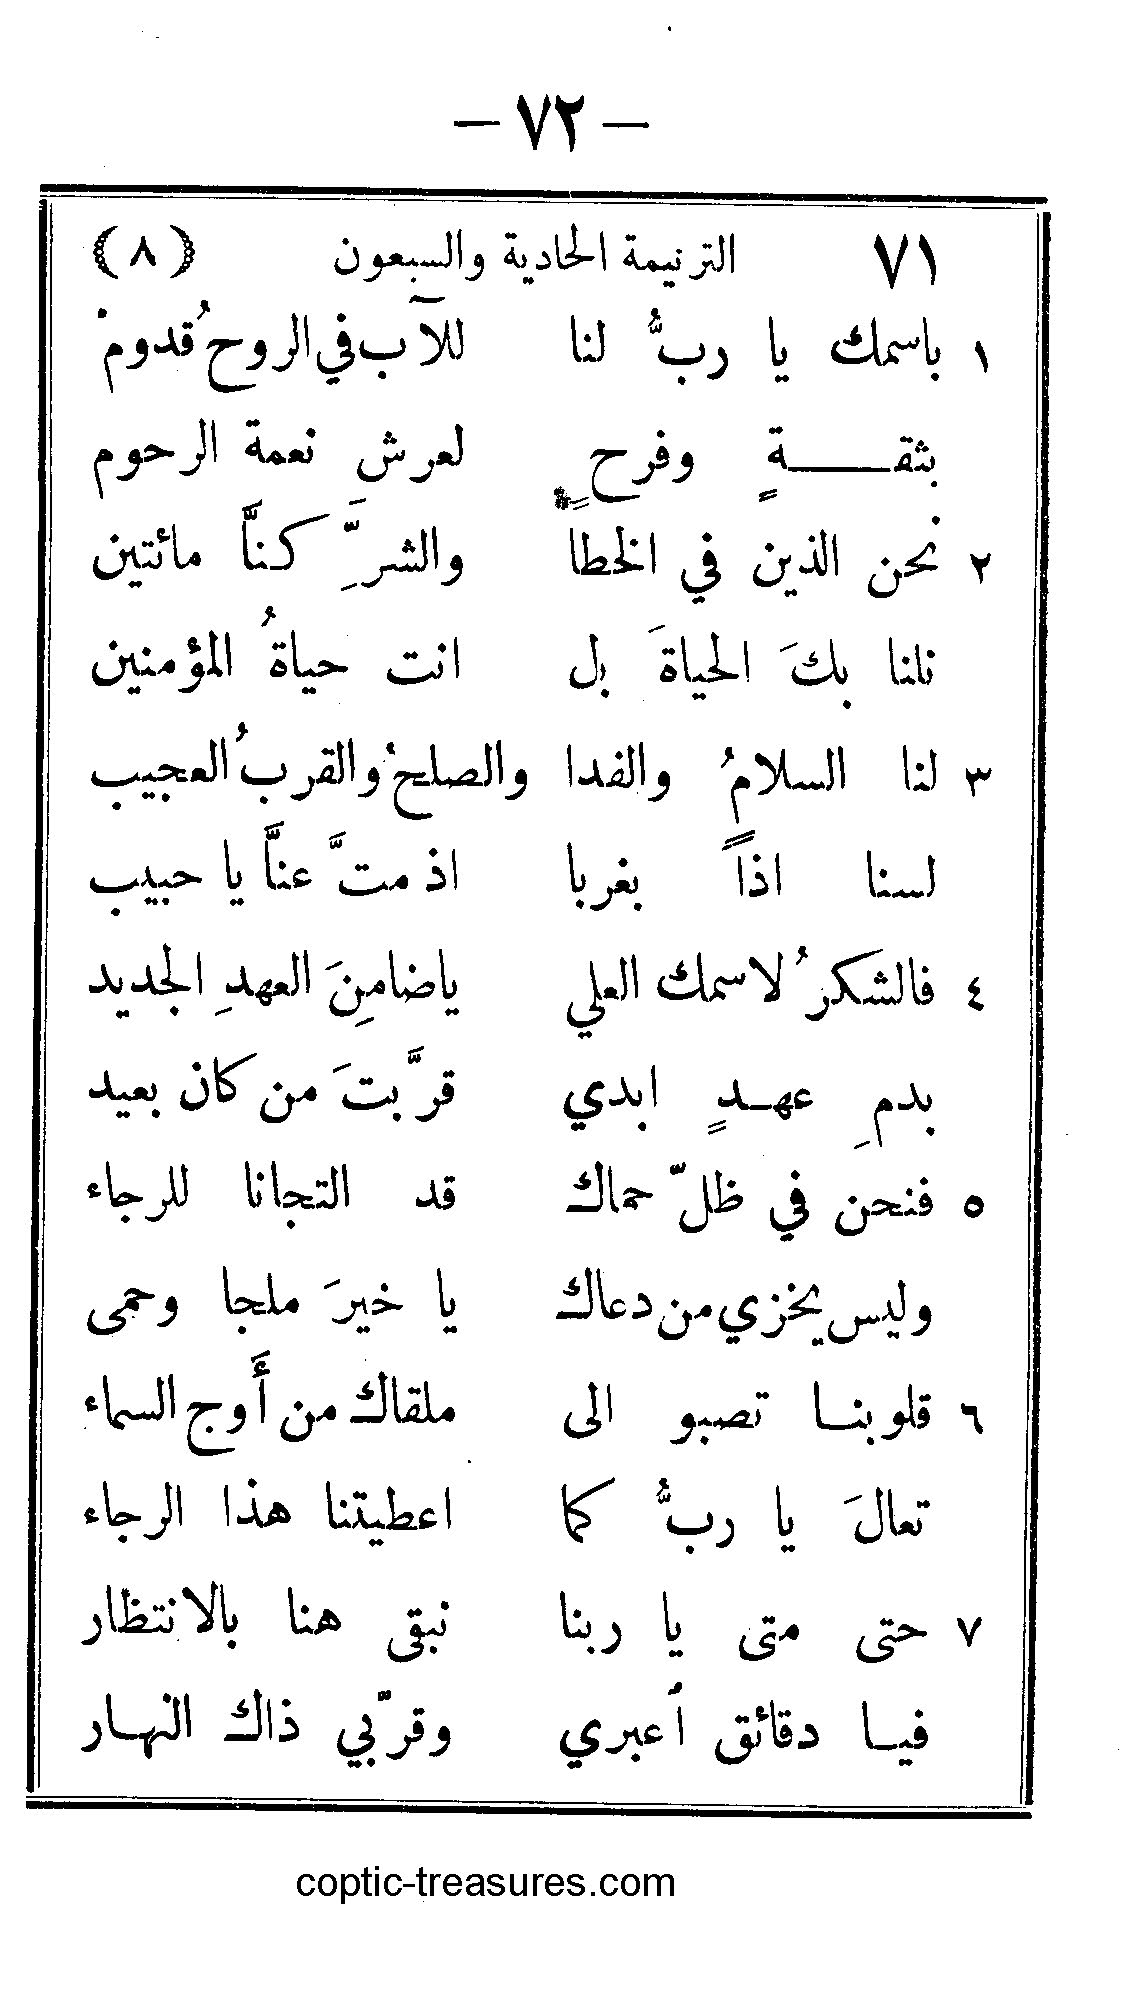 — ٧٢ —
٧١ الترنيمة الحادية والسبعون (٨)
١ باسمك يا ربُّ لنا للآب في الروحُ قدومْ
بثقةٍ وفرحٍ لعرش نعمة الرحوم
٢ نحن الذين في الخطا والشرَِّ كنَّا مائتين
نلنا بكَ الحياةَ بل انت حياةُ المؤمنين
٣ لنا السلامُ والفدا والصلحُ والقربُ العجيب
لسنا اذاً بغربا اذ متَّ عنَّا يا حبيب
٤ فالشكرُ لاسمك العلي ياضامِنَ العهدِ الجديد
بدمِ عهدٍ ابدي قرَّبتَ من كان بعيد
٥ فنحن في ظلّ حماك قد التجانا للرجاء
وليس يخزي من دعاك يا خيرَ ملجا وحمى
٦ قلوبنا تصبو الى ملقاك من أَوج السماء
تعالَ يا ربُّ كما اعطيتنا هذا الرجاء
٧ حتى متى يا ربنا نبقى هنا بالانتظار
فيا دقائق اُعبري وقرّبي ذاك النهار
coptic-treasures.com